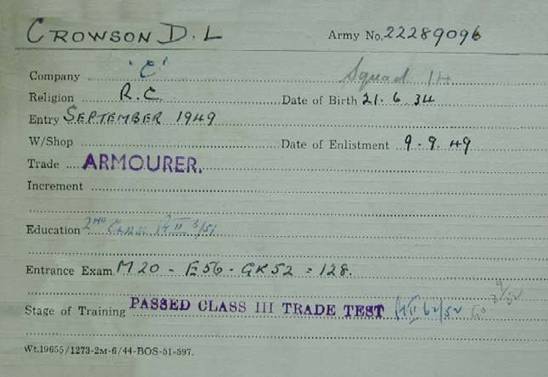 CROWSON D. L Army No. 22289096
Company 'C' Squad 14
Religion R.C. Date of Birth 21. 6. 34
Entry SEPTEMBER 1949
W/Shop Date of Enlistment 9. 9. 49
Trade ARMOURER.
Increment
Education 2ND CLASS. Pt II 3/51
Entrance Exam M20 - E56 - GK52 = 128.
Stage of Training PASSED CLASS III TRADE TEST
Wt.19655/1273-2M-6/44-BOS-51-597.